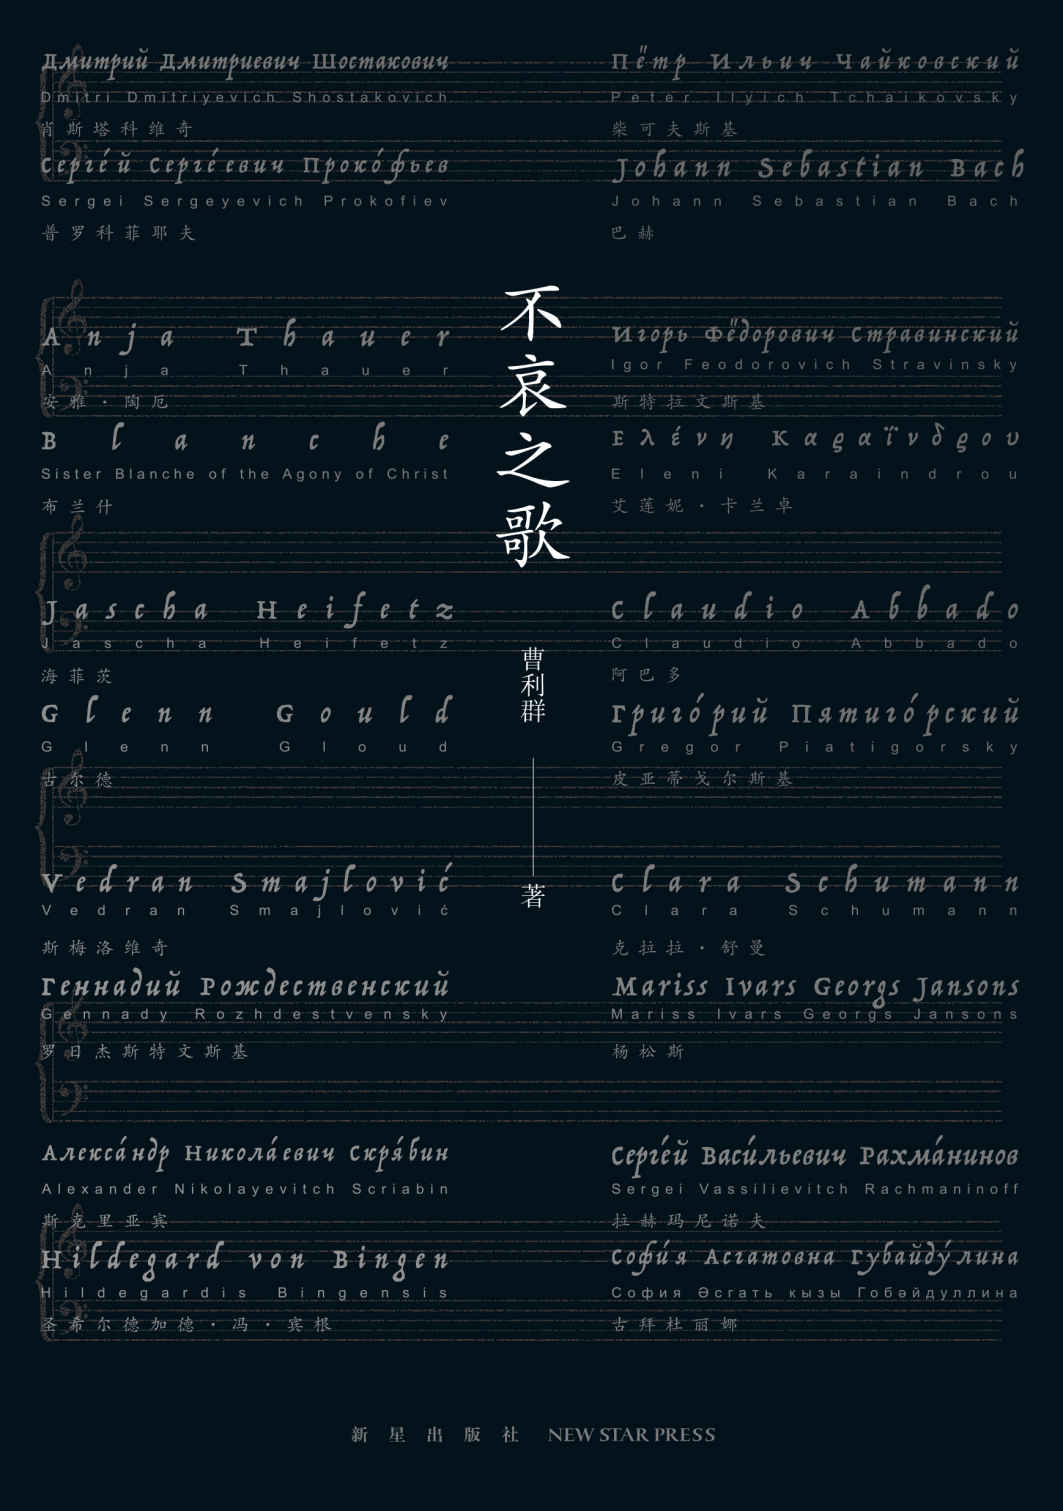 Дмитрий Дмитриевич Шостакович
Dmitri Dmitriyevich Shostakovich
肖斯塔科维奇
Серге́й Серге́евич Проко́фьев
Sergei Sergeyevich Prokofiev
普罗科菲耶夫
Anja Thauer
Anja Thauer
安雅·陶厄
Blanche
Sister Blanche of the Agony of Christ
布兰什
Jascha Heifetz
Jascha Heifetz
海菲茨
Glenn Gould
Glenn Gloud
古尔德
Vedran Smajlović
Vedran Smajlović
斯梅洛维奇
Геннадий Рождественский
Gennady Rozhdestvensky
罗日杰斯特文斯基
Алекса́ндр Никола́евич Скря́бин
Alexander Nikolayevitch Scriabin
斯克里亚宾
Hildegard von Bingen
Hildegardis Bingensis
圣希尔德加德·冯·宾根
不哀之歌
曹利群
著
Пётр Ильич Чайковский
Peter Ilyich Tchaikovsky
柴可夫斯基
Johann Sebastian Bach
Johann Sebastian Bach
巴赫
Игорь Фёдорович Стравинский
Igor Feodorovich Stravinsky
斯特拉文斯基
Ελένη Καραΐνδρου
Eleni Karaindrou
艾莲妮·卡兰卓
Claudio Abbado
Claudio Abbado
阿巴多
Григо́рий Пятиго́рский
Gregor Piatigorsky
皮亚蒂戈尔斯基
Clara Schumann
Clara Schumann
克拉拉·舒曼
Mariss Ivars Georgs Jansons
Mariss Ivars Georgs Jansons
杨松斯
Серге́й Васи́льевич Рахма́нинов
Sergei Vassilievitch Rachmaninoff
拉赫玛尼诺夫
Софи́я Асгатовна Губайду́лина
София Әсгать кызы Гобәйдуллина
古拜杜丽娜
新星出版社 NEW STAR PRESS